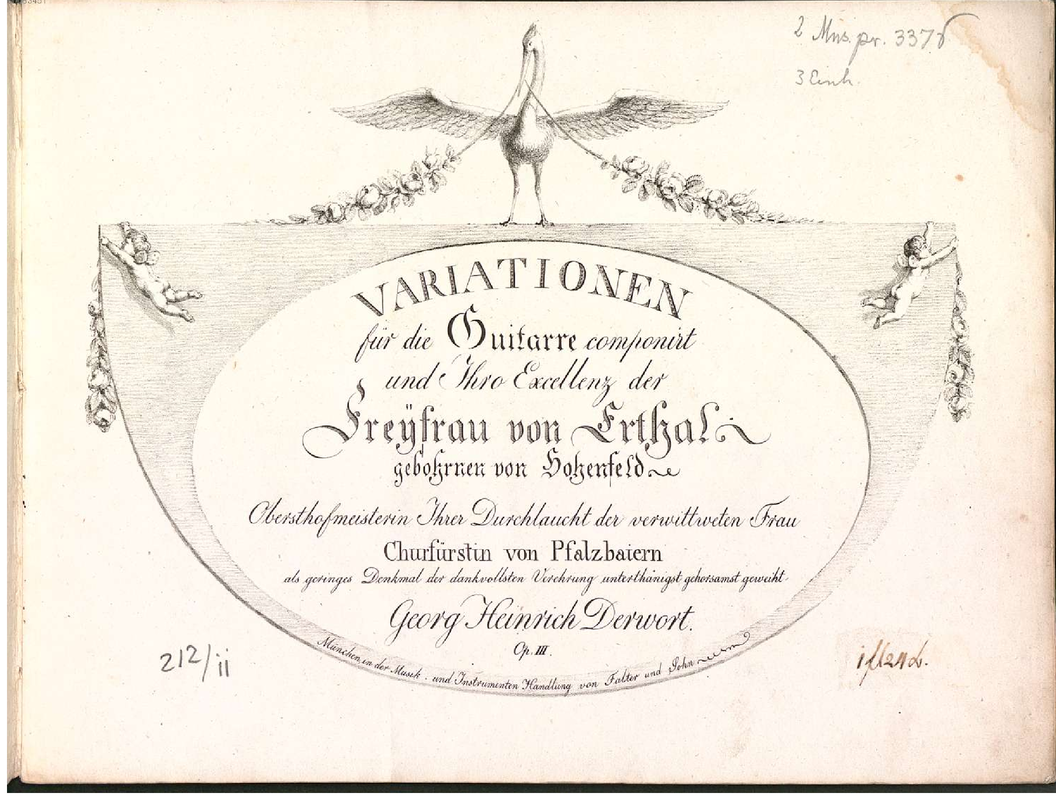 2 Mus. pr. 3378
3 Einh.
VARIATIONEN
für die Guitarre componirt
und Ihro Excellenz der
Freÿfrau von Erthal
gebohrnen von Hohenfeld
Obersthofmeisterin Ihrer Durchlaucht der verwittweten Frau
Churfürstin von Pfalzbaiern
als geringes Denkmal der dankvollsten Verehrung unterthänigst gehorsamst geweiht
Georg Heinrich Derwort.
Op. III.
München in der Musik- und Instrumenten Handlung von Falter und Sohn
212/ii